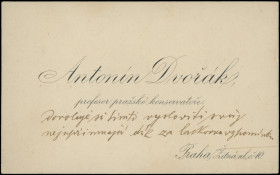 Antonín Dvořák,
profesor pražské konservatoře,
dovoluje si tímto vysloviti svůj
nejupřímnější dík za laskavou
Praha, Žitná ul. č. 10.